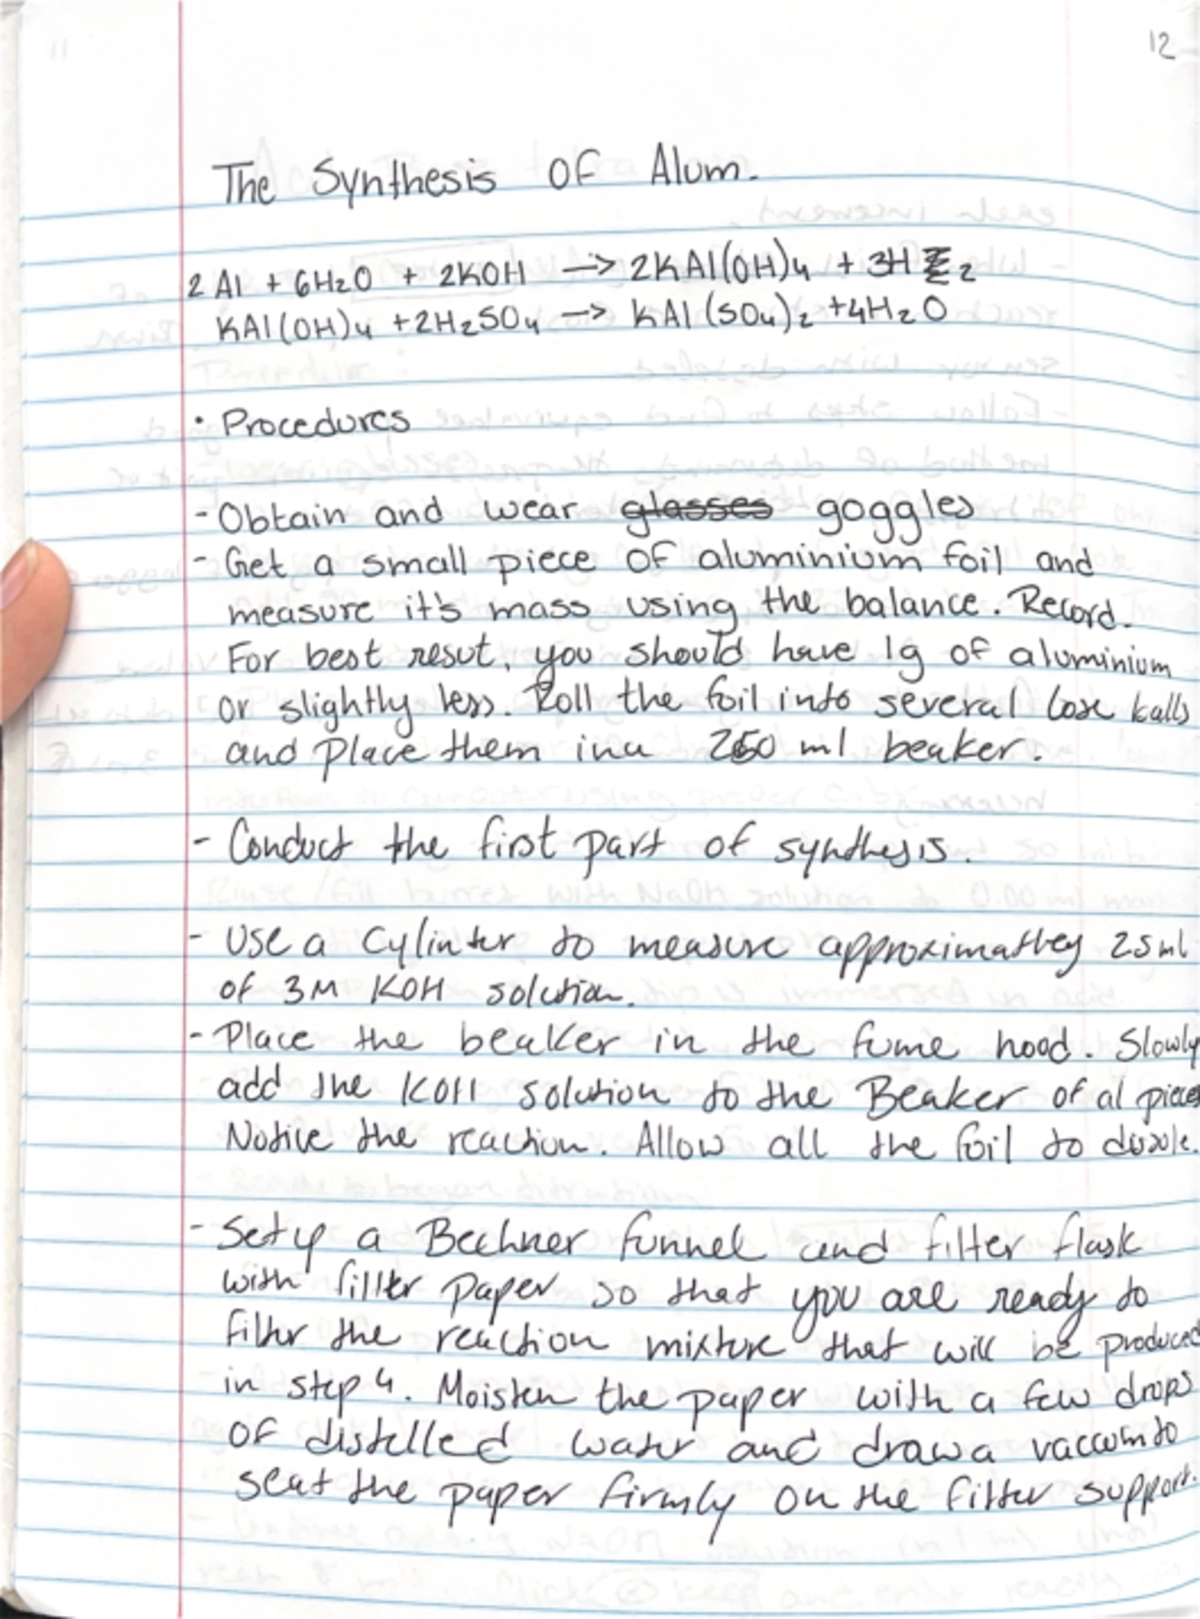 12
The Synthesis OF Alum.
2 Al + 6H₂O + 2KOH —> 2KAl(OH)₄ + 3H₂
KAl(OH)₄ +2H₂SO₄ —> KAl(SO₄)₂ +4H₂O
• Procedures
- Obtain and wear glasses goggles
- Get a small piece of aluminium foil and
measure it's mass using the balance. Record.
For best resut, you should have 1g of aluminium
or slightly less. Roll the foil into several lose balls
and place them in a 250 ml beaker.
- Conduct the first part of synthesis.
- Use a Cylinter to measure approximatley 25ml
of 3M KOH solution.
- Place the beaker in the fume hood. Slowly
add the KOH solution to the Beaker of al pieces
Notice the reaction. Allow all the foil to
- Set up a funnel and filter flask
with fillter paper so that you are ready to
filter the reaction mixture that will be produced
in step 4. Moisten the paper with a few drops
of distelled water and draw a vaccum to
seat the paper firmly on the filter support.